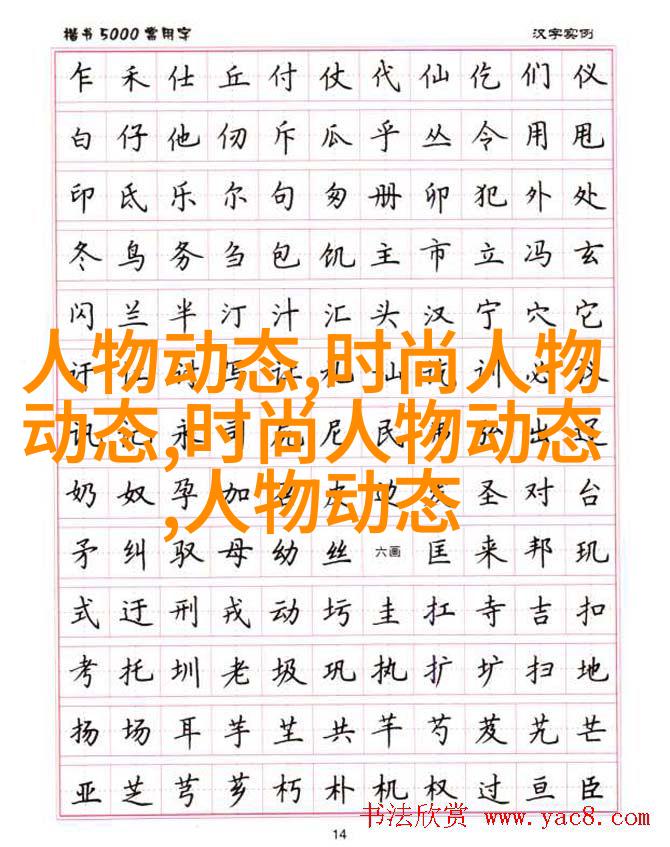 楷书5000常用字 汉字实例
乍 禾 仕 丘 付 仗 代 仙 仡 们 仪
白 仔 他 仞 斥 瓜 乎 丛 令 用 甩
印 氐 乐 尔 句 匆 册 卯 犯 外 处
冬 鸟 务 刍 包 饥 主 市 立 冯 玄
闪 兰 半 汀 汁 汇 头 汉 宁 穴 它
人物动态,时尚人物
讦 讨 写 让 礼 讪 训 必 议
动态,时尚人物动态
讯 记 永 司 尼 民 弗 弘 出 辽
,人物动态
奶 奴 孕 加 皮 边 发 圣 对 台
矛 纠 驭 母 幼 丝 六画 匡 来 邦 玑
式 迂 刑 戎 动 圬 圭 扛 寺 吉 扣
考 托 圳 老 圾 巩 执 扩 圹 扫 地
扬 场 耳 芋 芏 共 芊 芍 芨 艽 芒
亚 芝 芎 芗 朽 朴 机 权 过 亘 臣
书法欣赏 www.yac8.com
14